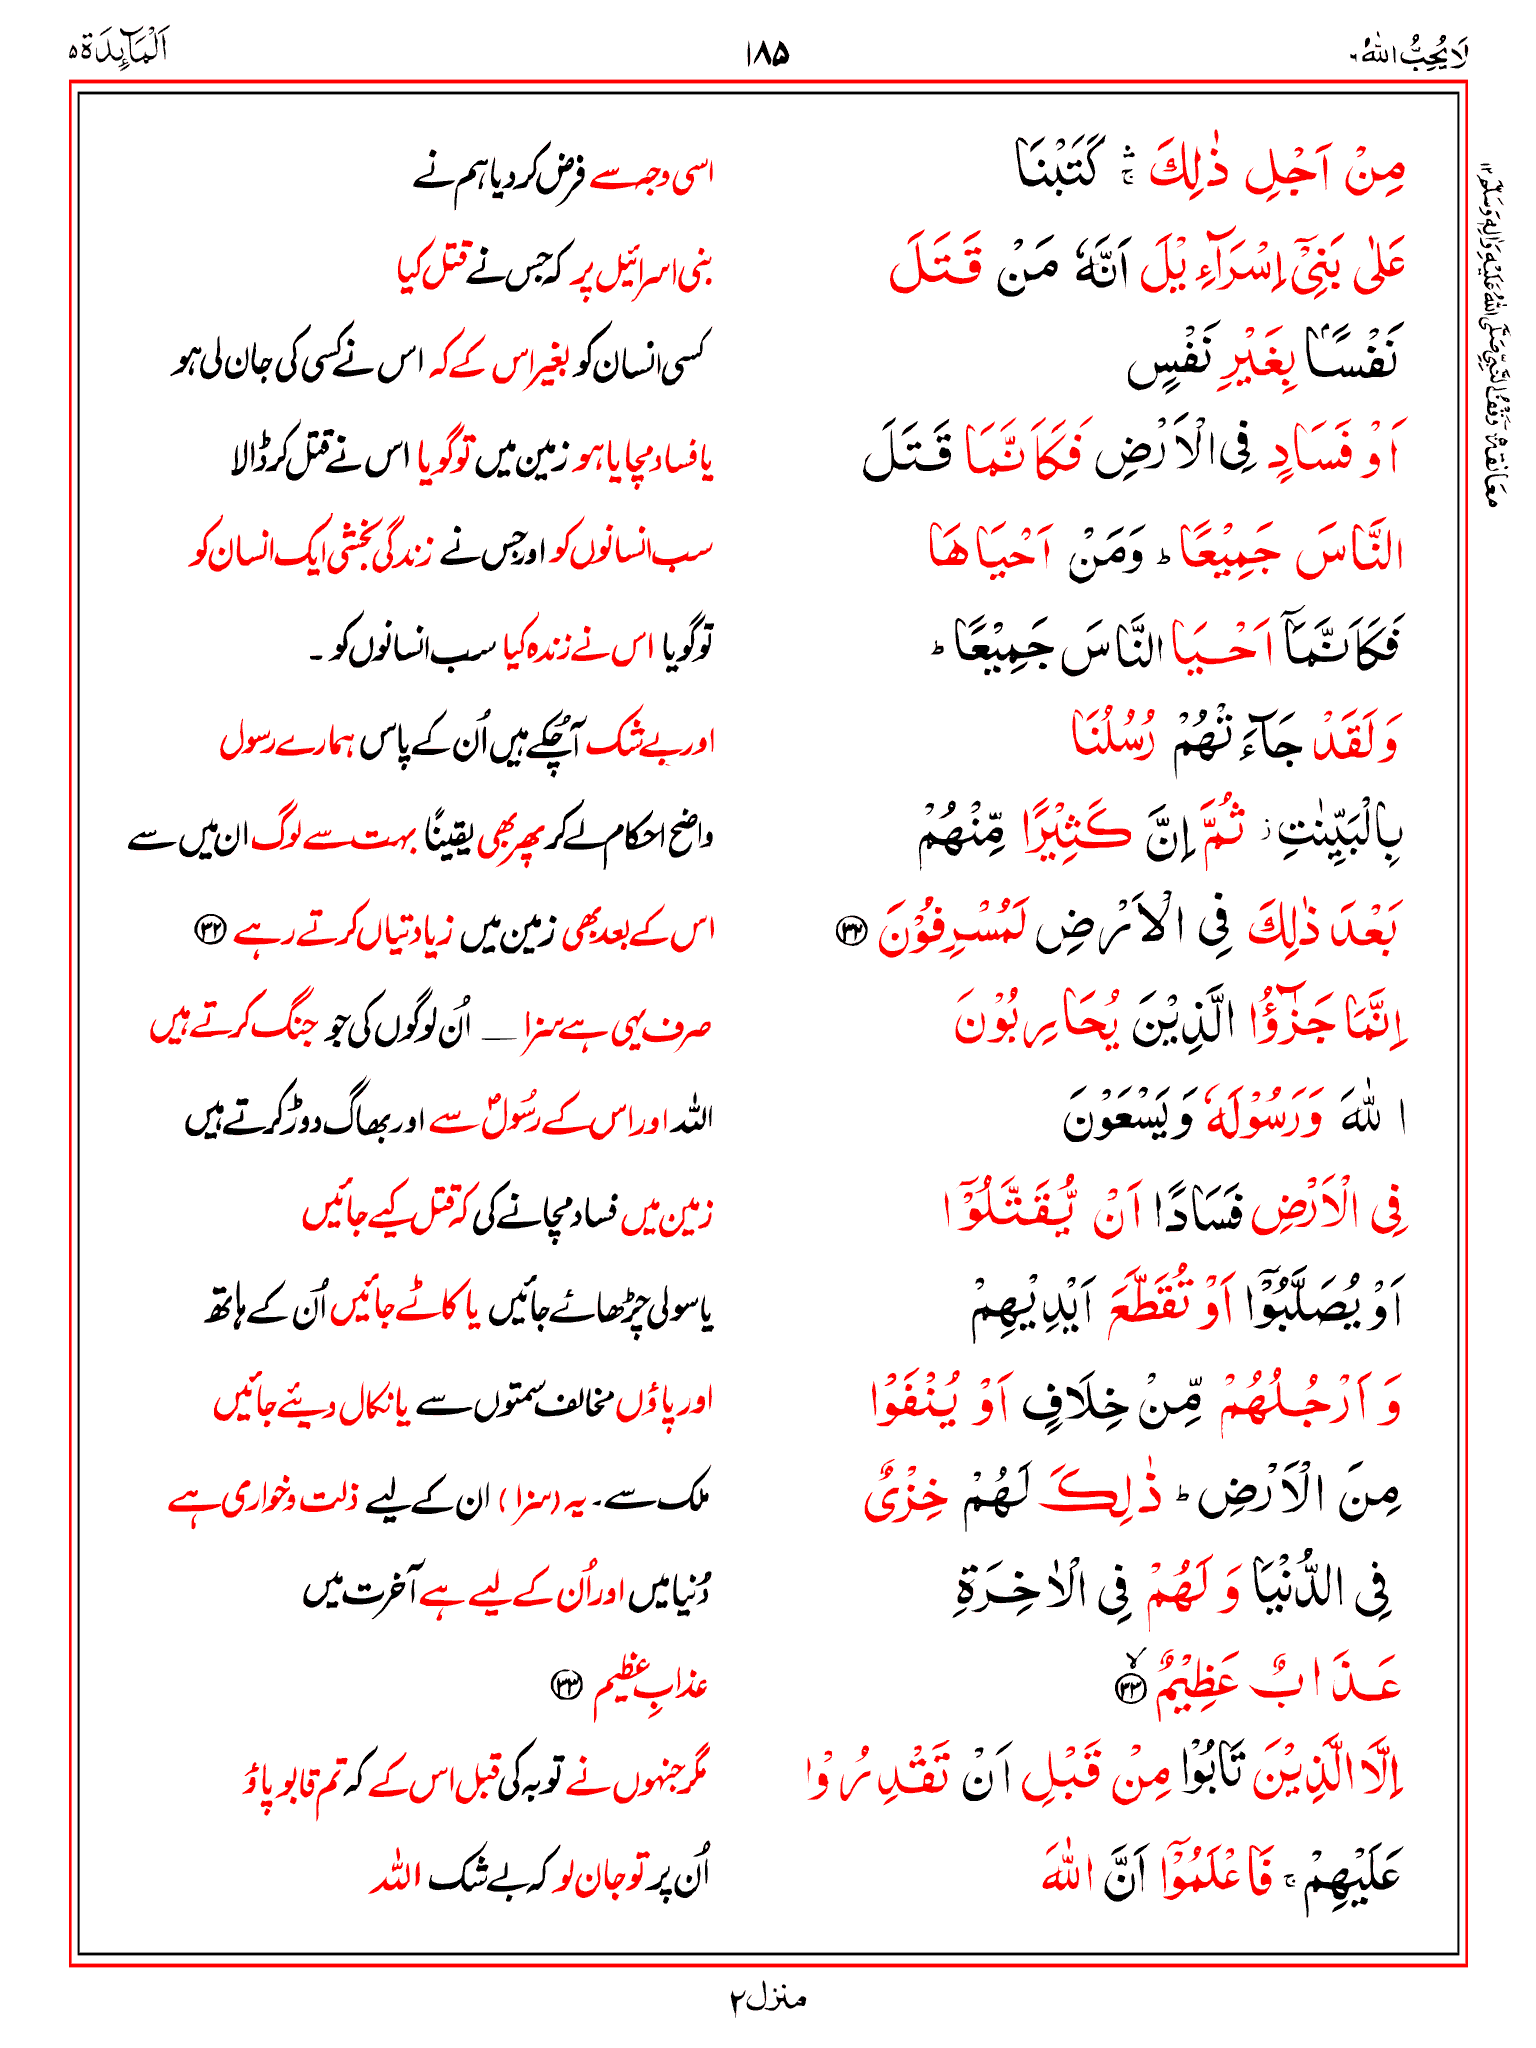 لَا يُحِبُّ اللّٰهُ ۶
۱۸۵
اَلْمَآئِدَة ۵
مِنْ اَجْلِ ذٰلِكَ ۛۚ كَتَبْنَا
اسی وجہ سے فرض کر دیا ہم نے
عَلٰى بَنِيْۤ اِسْرَآءِيْلَ اَنَّهٗ مَنْ قَتَلَ
بنی اسرائیل پر کہ جس نے قتل کیا
نَفْسًۢا بِغَيْرِ نَفْسٍ
کسی انسان کو بغیر اس کے کہ اس نے کسی کی جان لی ہو
اَوْ فَسَادٍ فِي الْاَرْضِ فَكَاَنَّمَا قَتَلَ
یا فساد مچایا ہو زمین میں تو گویا اس نے قتل کر ڈالا
النَّاسَ جَمِيْعًا ؕ وَمَنْ اَحْيَاهَا
سب انسانوں کو اور جس نے زندگی بخشی ایک انسان کو
فَكَاَنَّمَاۤ اَحْيَا النَّاسَ جَمِيْعًا ؕ
تو گویا اس نے زندہ کیا سب انسانوں کو ۔
وَلَقَدْ جَآءَتْهُمْ رُسُلُنَا
اور بے شک آ چُکے ہیں اُن کے پاس ہمارے رسول
بِالْبَيِّنٰتِ ؗ ثُمَّ اِنَّ كَثِيْرًا مِّنْهُمْ
واضح احکام لے کر پھر بھی یقینًا بہت سے لوگ ان میں سے
بَعْدَ ذٰلِكَ فِي الْاَرْضِ لَمُسْرِفُوْنَ ۳۲
اس کے بعد بھی زمین میں زیادتیاں کرتے رہے ۳۲
اِنَّمَا جَزٰٓؤُا الَّذِيْنَ يُحَارِبُوْنَ
صرف یہی ہے سزا — اُن لوگوں کی جو جنگ کرتے ہیں
اللّٰهَ وَرَسُوْلَهٗ وَيَسْعَوْنَ
اللہ اور اس کے رسُولؐ سے اور بھاگ دوڑ کرتے ہیں
فِي الْاَرْضِ فَسَادًا اَنْ يُّقَتَّلُوْۤا
زمین میں فساد مچانے کی کہ قتل کیے جائیں
اَوْ يُصَلَّبُوْۤا اَوْ تُقَطَّعَ اَيْدِيْهِمْ
یا سولی چڑھائے جائیں یا کاٹے جائیں اُن کے ہاتھ
وَاَرْجُلُهُمْ مِّنْ خِلَافٍ اَوْ يُنْفَوْا
اور پاؤں مخالف سمتوں سے یا نکال دیئے جائیں
مِنَ الْاَرْضِ ؕ ذٰلِكَ لَهُمْ خِزْيٌ
ملک سے۔ یہ (سزا) ان کے لیے ذلت و خواری ہے
فِي الدُّنْيَا وَلَهُمْ فِي الْاٰخِرَةِ
دُنیا میں اور اُن کے لیے ہے آخرت میں
عَذَابٌ عَظِيْمٌ ۳۳ ۙ
عذابِ عظیم ۳۳
اِلَّا الَّذِيْنَ تَابُوْا مِنْ قَبْلِ اَنْ تَقْدِرُوْا
مگر جنہوں نے توبہ کی قبل اس کے کہ تم قابو پاؤ
عَلَيْهِمْ ۚ فَاعْلَمُوْۤا اَنَّ اللّٰهَ
اُن پر تو جان لو کہ بے شک اللہ
معانقة وقف النبي صَلَّى اللّٰهُ عَلَيْهِ وَاٰلِهٖ وَسَلَّمَ ۱۲
منزل ۲